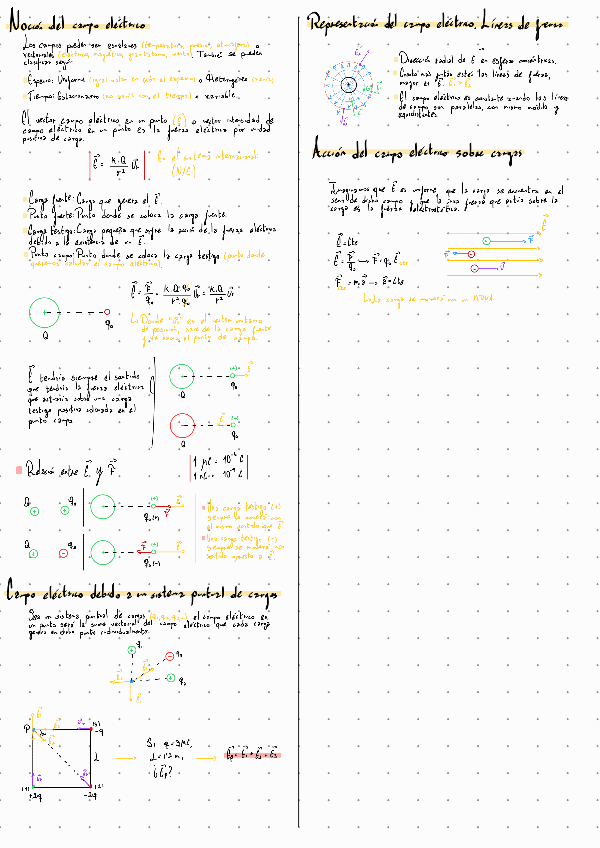 Noción del campo eléctrico
Los campos pueden ser escalares (temperatura, presión, atmósfera) o
vectoriales (eléctrico, magnético, gravitatorio, viento). También se pueden
clasificar según:
Espacio: Uniforme (igual valor en todo el espacio) o Heterogéneo (varía)
Tiempo: Estacionario (no varía con el tiempo) o variable.
El vector campo eléctrico en un punto (E) o vector intensidad de
campo eléctrico en un punto es la fuerza eléctrica por unidad
positiva de carga.
E = K·Q/r² Ur
En el sistema internacional:
(N/C)
Carga fuente: Carga que genera el E.
Punto fuente: Punto donde se coloca la carga fuente.
Carga testigo: Carga pequeña que sufre la acción de la fuerza eléctrica
debido a la existencia de un E.
Punto campo: Punto donde se coloca la carga testigo (punto donde
queremos calcular el campo eléctrico).
E = F/q₀ = K·Q·q₀/r²·q₀ Ur = K·Q/r² Ur
Q
q₀
E tendría siempre el sentido
que tendría la fuerza eléctrica
que actuaría sobre una carga
testigo positiva colocada en el
punto campo
Q
q₀
E
Q
q₀
E
Relación entre E y F
1 µC = 10⁻⁶ C
1 nC = 10⁻⁹ C
Q q₀
(+) F E
q₀(-)
Una carga testigo (+)
siempre se moverá con
el mismo sentido que E
Q q₀
F (+) E
q₀(-)
Una carga testigo (-)
siempre se moverá con
sentido opuesto a E.
Campo eléctrico debido a un sistema puntual de cargas
Sea un sistema puntual de cargas (q₁, q₂, q₃...) el campo eléctrico en
un punto será la suma vectorial del campo eléctrico que cada carga
genera en dicho punto individualmente.
q₁
q₂
q₃
P
-q
L
+2q
-2q
Si q = 3µC,
L = 1'2 m,
¿Ep?
Ep = E₁ + E₂ + E₃
Representación del campo eléctrico. Líneas de fuerza
Dirección radial de E en esferas concéntricas.
Cuanto más juntas estén las líneas de fuerza,
mayor es E.
El campo eléctrico es constante cuando las líneas
de campo son paralelas, con mismo módulo y
equidistantes.
Acción del campo eléctrico sobre cargas
Imaginamos que E es uniforme, que la carga se encuentra en el
seno de dicho campo y que la única fuerza que actúa sobre la
carga es la fuerza electrostática.
E = Cte
E = F/q₀ → F = q₀·E
F = m·a → a = Cte
La carga se moverá con un MRUA